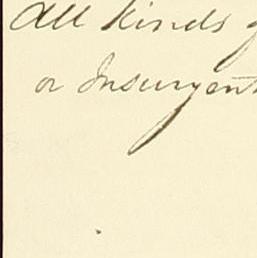 All kinds
or Insurgent